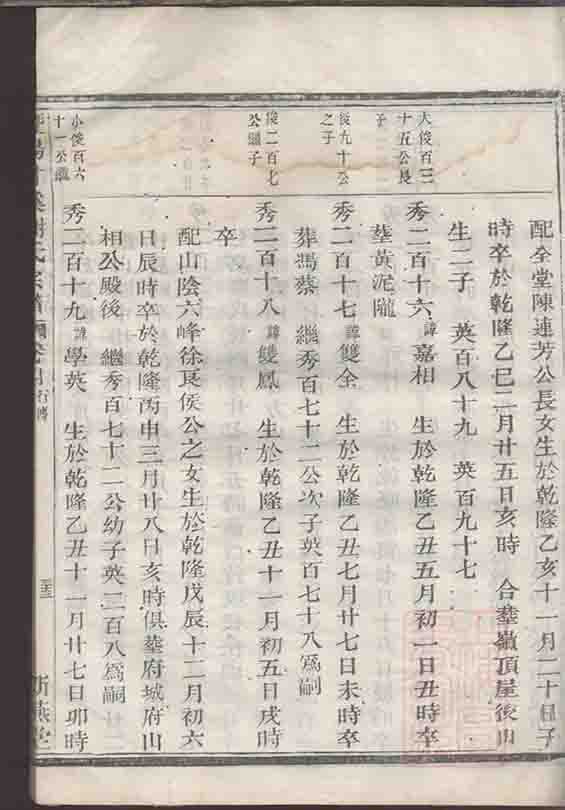 配全堂陳連芳公長女生於乾隆乙亥十一月二十日子
時卒於乾隆乙巳二月廿五日亥時 合塟嶺頂屋後山
生二子 英百八十九 英百九十七
大俊百三
十五公長
子
秀二百十六諱嘉相 生於乾隆乙丑五月初一日丑時卒
塟黄泥隴
俊九十公
之子
秀二百十七諱雙全 生於乾隆乙丑七月廿七日未時卒
葬馮蔡 繼秀百七十二公次子英百七十八爲嗣
俊二百七
公繼子
秀二百十八諱雙鳳 生於乾隆乙丑十一月初五日戌時
卒
配山陰六峰徐良侯公之女生於乾隆戊辰十二月初六
日辰時卒於乾隆丙申三月廿八日亥時俱塟府城府山
相公殿後 繼秀百七十二公幼子英二百八爲嗣
小俊百六
十一公繼
秀二百十九諱學英 生於乾隆乙丑十一月廿七日卯時
氏宗譜 行傳